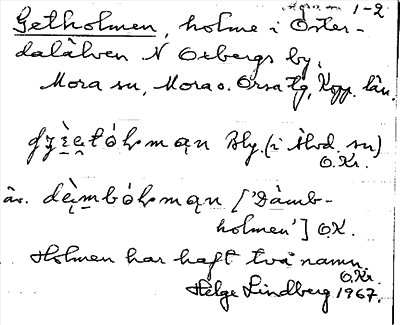 1-2
Getholmen, holme i Öster-
dalälven N Oxbergs by,
Mora sn, Mora o. Orsa tg, Kopp. län.
Bly. (i Älvd. sn)
O.Kr.
äv. ['Dämb-
holmen'] O.K.
Holmen har haft två namn.
O.Kr.
Helge Lindberg 1967.